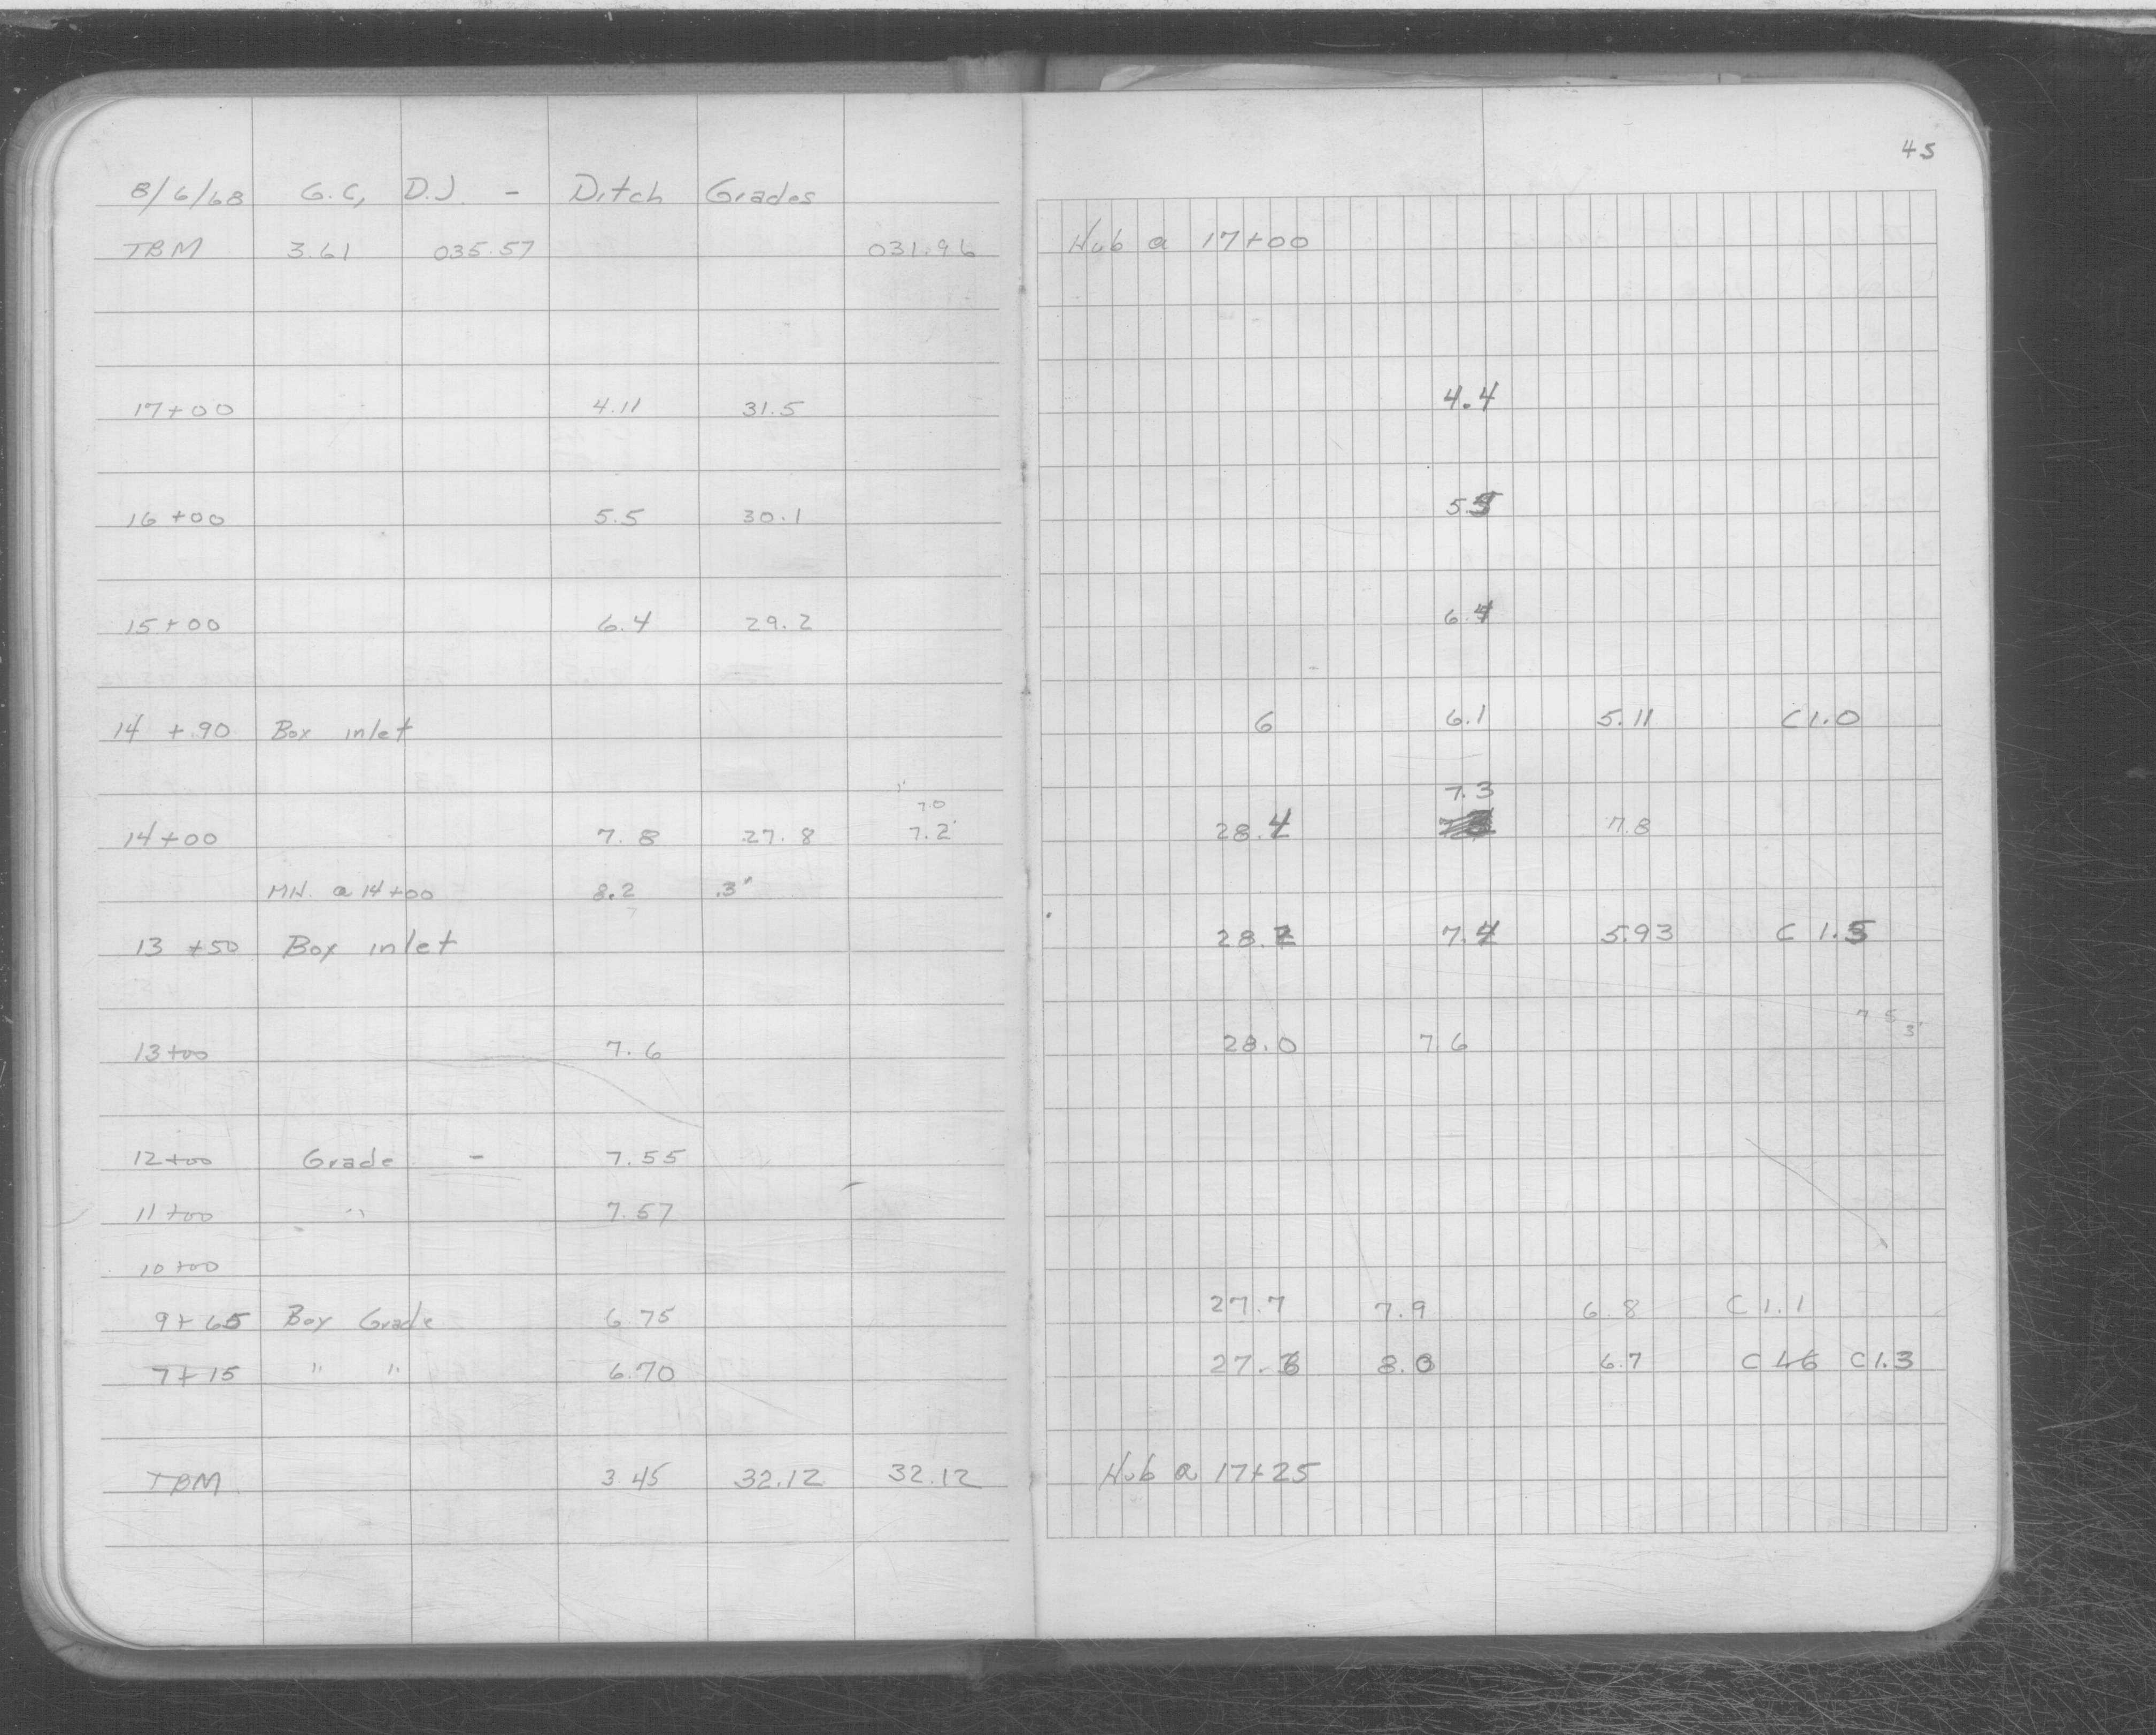 45
8/6/68 G.C, D.J. - Ditch Grades
TBM 3.61 035.57 031.96 Hub @ 17+00
17+00 4.11 31.5 4.4
16+00 5.5 30.1 5.5
15+00 6.4 29.2 6.4
14 +90 Box inlet 6 6.1 5.11 C 1.0
7.0 7.3
14+00 7.8 27.8 7.2' 28.4 7.8
MH. @ 14+00 8.2 .3'
7
13 +50 Box inlet 28.2 7.4 5.93 C 1.5
7 5 3'
13+00 7.6 28.0 7.6
12+00 Grade - 7.55
11+00 " 7.57
10+00
9+65 Box Grade 6.75 27.7 7.9 6.8 C 1.1
7+15 " " 6.70 27.6 8.0 6.7 C 1.6 C 1.3
TBM 3.45 32.12 32.12 Hub @ 17+25